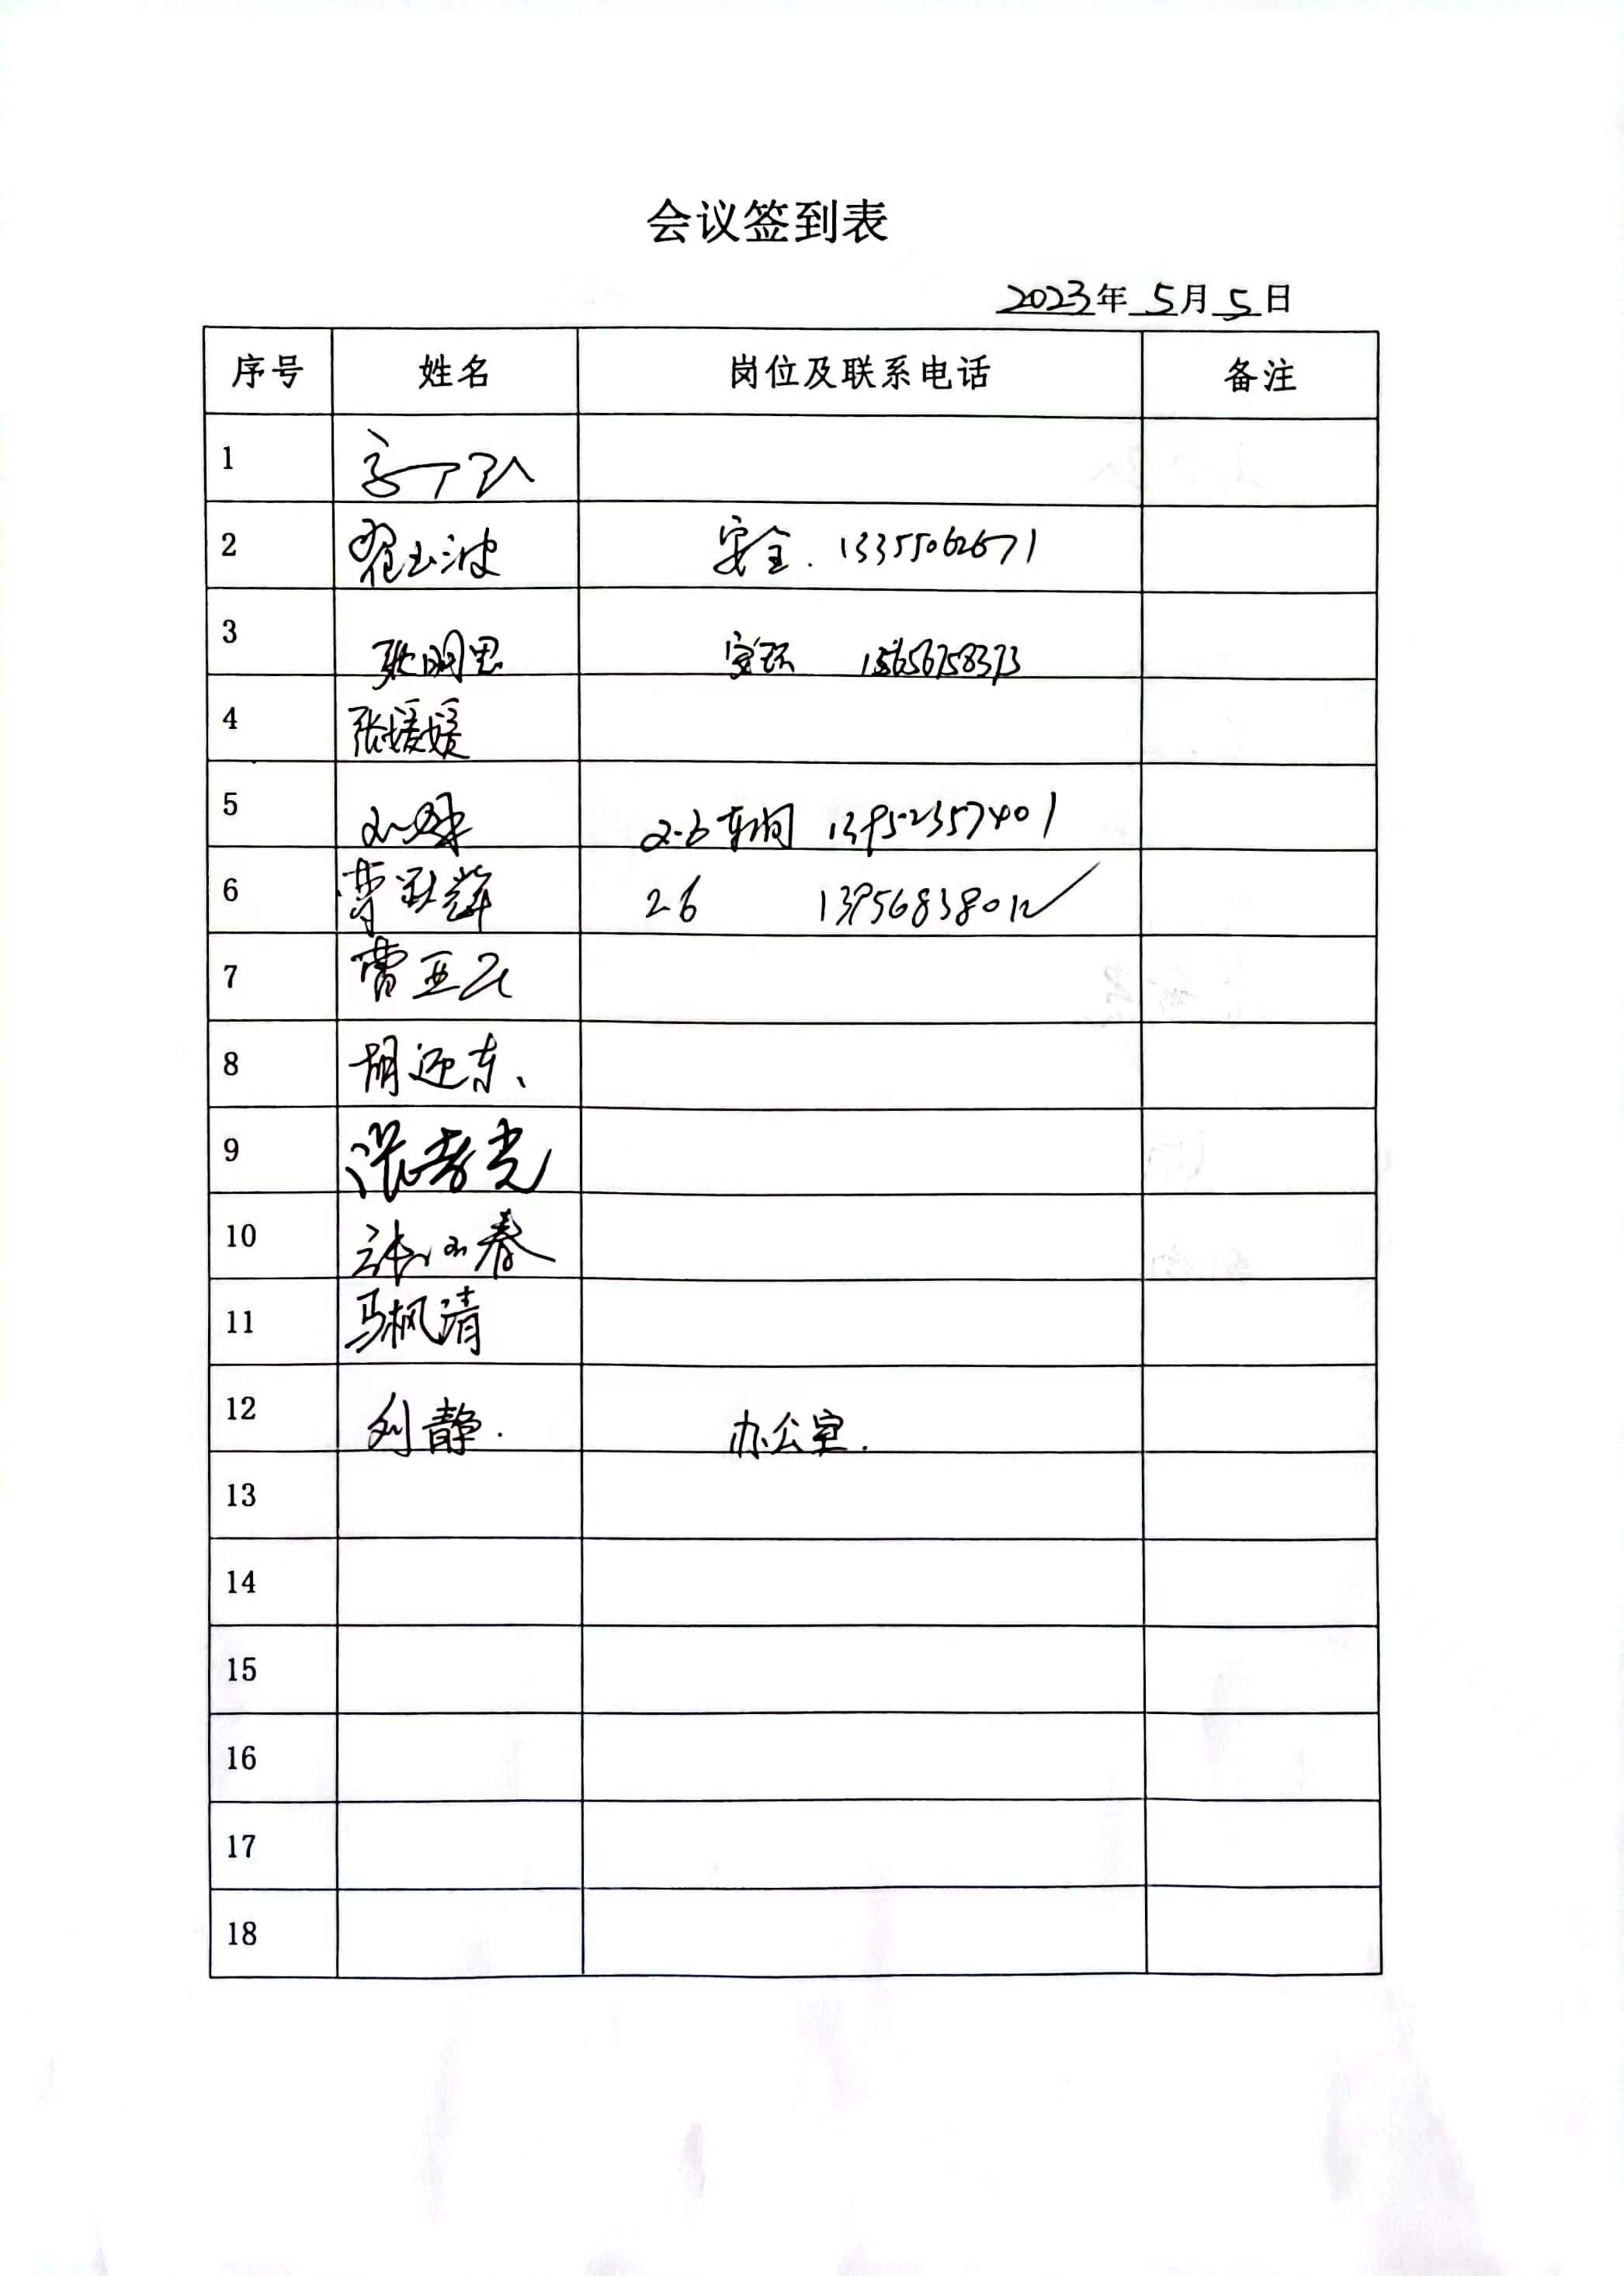 会议签到表
2023年 5月 5日
序号 姓名 岗位及联系电话 备注
1
2 翟玉波 安全. 13355062671
3 张明思 安环
4 张媛媛
5 2-6车间 13952357401
6 曹 辉 26
7 曹亚
8 胡迎东、
9 张孝光
10 张小春
11 马枫清
12 刘静. 办公室.
13
14
15
16
17
18